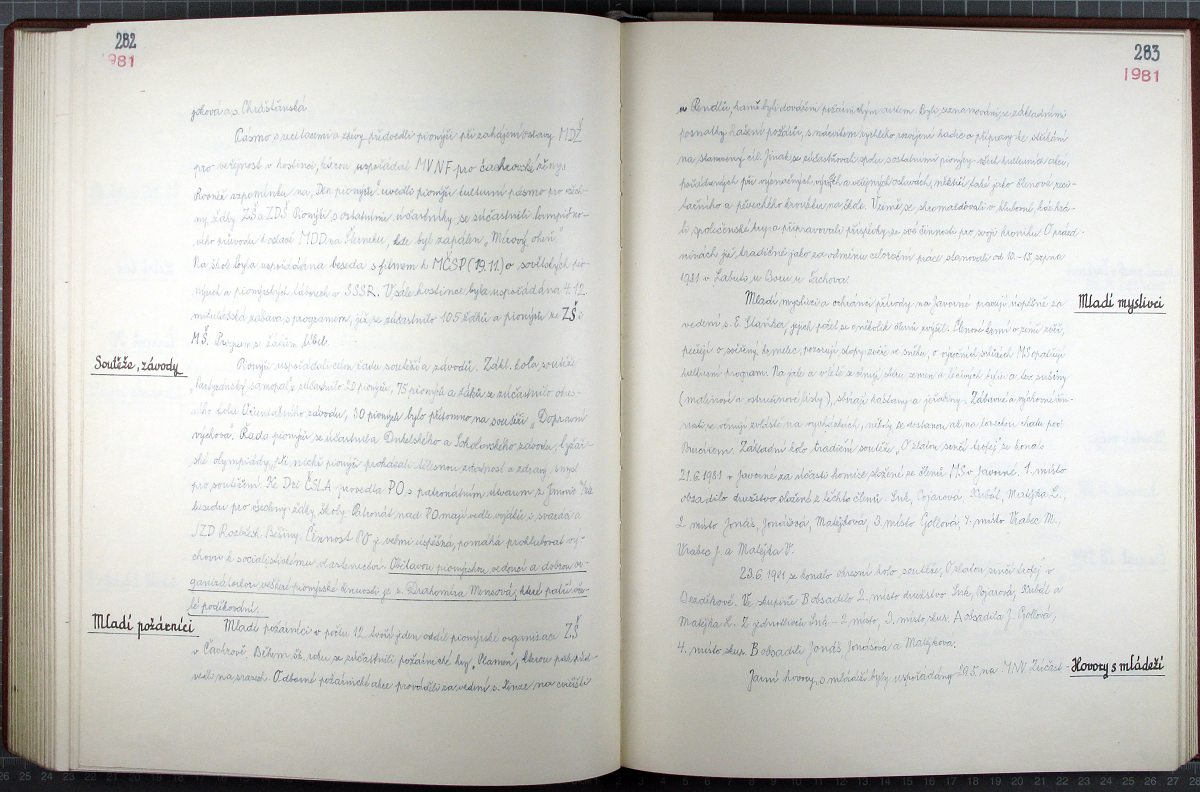 282
1981
jchová a s. Chrášťanská
Pásmo s recitacemi a zpěvy předvedli pionýři při zahájení oslavy MDŽ
pro veřejnost v hostinci, kterou uspořádal MVNF pro čachrovské ženy.
Rovněž vzpomínku na „Den pionýrů" uvedli pionýři kulturní pásmo pro všech-
ny žáky ZŠ a ZDŠ Pionýři s ostatními účastníky se zúčastnili lampiono-
vého průvodu k oslavě MDD na Šterneku, kde byl zapálen „Mírový oheň".
Na škole byla uspořádána beseda s filmem k MČSP (19.11.) o sovětských pio-
nýrech a pionýrských táborech v SSSR. V sále hostince byla uspořádána 4.12.
mikulášská zábava s programem, jíž se zúčastnilo 105 žáků a pionýrů ze ZŠ i
MŠ. Program se žákům líbil.
Soutěže, závody
Pionýři uspořádali celou řadu soutěží a závodů. Zákl. kola soutěže
„Partyzánský samopal" se zúčastnilo 20 pionýrů, 75 pionýrů a žáků se zúčastnilo okrs-
kového kola Orientačního závodu, 30 pionýrů bylo přítomno na soutěži „Dopravní
výchova". Řada pionýrů se účastnila Dukelského a Sokolovského závodu, lyžař-
ské olympiády, při nichž pionýři prokázali tělesnou zdatnost a zdravý smysl
pro soutěžení. Ke Dni ČSLA provedla PO s patronátním útvarem z Janovic
besedu pro všechny žáky školy. Patronát nad PO mají vedle vojáků s. svazáci a
JZD Rozvoj Běšiny. Činnost PO je velmi úspěšná, pomáhá prohlubovat vý-
chovu k socialistickému vlastenectví. Obětavou pionýrskou vedoucí a dobrou or-
ganizátorkou veškeré pionýrské činnosti je s. Drahomíra Menšová, které patří vře-
lé poděkování.
Mladí požárníci
Mladí požárníci v počtu 12 tvoří jeden oddíl pionýrské organizace ZŠ
v Čachrově. Během šk. roku se zúčastnili požárnické hry „Plamen", kterou pak před-
vedli na srazech. Odborné požárnické akce prováděli za vedení s. Zemze na cvičišti
283
1981
u Rendlů, kamž byli dováženi požárnickým autem. Byli seznamováni se základními
poznatky hašení požárů, s nácvikem rychlého rozvíjení hadic a přípravy ke stříkání
na stanovený cíl. Jinak se zúčastňovali spolu s ostatními pionýry všech kulturních akcí,
pořádaných při významných výročích a veřejných oslavách, někteří také jako členové reci-
tačního a pěveckého kroužku na škole. V zimě se shromažďovali v klubovně, kde hrá-
li společenské hry a připravovali příspěvky ze své činnosti pro svoji kroniku. O prázd-
ninách již tradičně jako za odměnu celoroční práce stanovali od 10.-15. srpna
1981 v Labuti u Boru u Tachova.
Mladí myslivci
Mladí myslivci a ochránci přírody na Javorné pracují úspěšně za
vedení s. E. Staňka, jejich počet se o několik členů zvýšil. Členové krmí v zimě zvěř,
pečují o svěřený krmelec, pozorují stopy zvěře ve sněhu, o výročních schůzích MS opatřují
kulturní program. Na jaře a v létě se věnují sběru semen a léčivých bylin a lov. sušiny
(malinové a ostružinové listy), sbírají kaštany a jeřabiny. Zábavné a výchovné čin-
nosti se věnují zvláště na vycházkách, někdy se dostanou až na loveckou chatu pod
Prenětem. Základní kolo tradiční soutěže „O zlatou srnčí trofej" se konalo
21.6.1981 v Javorné za účasti komise složené ze členů MS v Javorné. 1. místo
obsadilo družstvo složené z těchto členů: Snk, Pojarová, Kubál, Matějka L.,
2. místo Jonáš, Jonášová, Matějková, 3. místo Gollová, 4. místo Vrabec M.,
Vrabec J. a Matějka V.
23.6.1981 se konalo okresní kolo soutěže, O zlatou srnčí trofej v
Dezdíkově. Ve skupině B obsadilo 2. místo družstvo Snk, Pojarová, Kubál a
Matějka L. Z jednotlivců Snk - 2. místo, 3. místo skup. A obsadila J. Gollová,
4. místo skup. B obsadili Jonáš, Jonášová a Matějková.
Hovory s mládeží
Jarní hovory s mládeží byly uspořádány 28.5. na MNV. Zúčast-